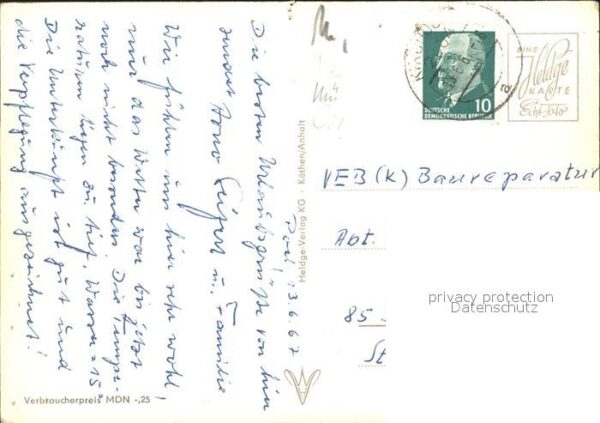 Die besten Urlaubsgrüße von hier
sendet Horst Seifert u. Familie
Wir fühlen uns hier sehr wohl,
nur das Wetter war bis jetzt
noch nicht besonders. Die Tempe-
raturen liegen zu tief. Wasser = 15°
Die Unterkunft ist gut und
die Verpflegung ausgezeichnet!
13.6.67
Verbraucherpreis MDN -,25
Heldge-Verlag KG · Köthen/Anhalt
10
DEUTSCHE
DEMOKRATISCHE REPUBLIK
EINE
Heldge
KARTE
Echt Foto
VEB (K) Baureparatur
Abt.
85
St
privacy protection
Datenschutz